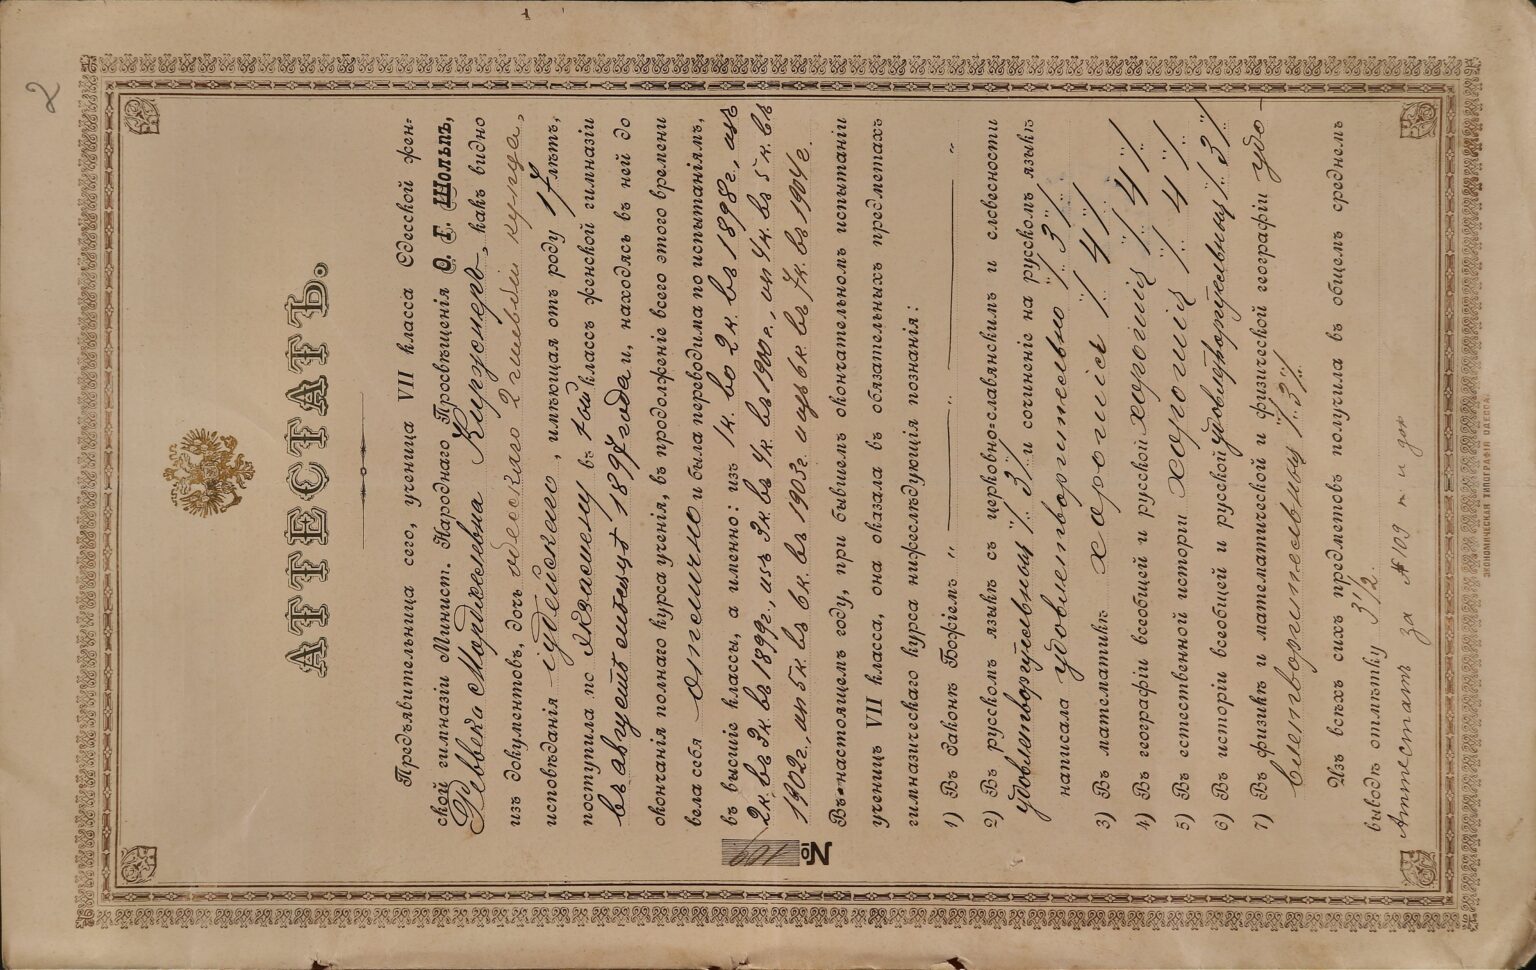 2
АТТЕСТАТЪ.
Предъявительница сего, ученица VII класса Одесской жен-
ской гимназіи Минист. Народнаго Просвѣщенія О. Г. Шольпъ,
Ревека Мордкелевна, какъ видно
изъ документовъ, дочь одесского 2 гильдіи купца,
исповѣданія іудейского, имѣющая отъ роду 17 лѣтъ,
поступила по экзамену въ 1ый классъ женской гимназіи
въ августѣ 1897 года и, находясь въ ней до
окончанія полнаго курса ученія, въ продолженіе всего этого времени
вела себя отлично и была переводима по испытаніямъ,
въ высшіе классы, а именно: изъ 1 к. во 2 к. въ 1898 г., изъ
2 к. въ 3 к. въ 1899 г., изъ 3 к. въ 4 к. въ 1900 г., из 4 к. въ 5 к. въ
1902 г., из 5 к. въ 6 к. въ 1903 г. и изъ 6 к. въ 7 к. въ 1904 г.
Въ настоящемъ году, при бывшемъ окончательномъ испытаніи
ученицъ VII класса, она оказала въ обязательныхъ предметахъ
гимназическаго курса нижеслѣдующія познанія:
1) Въ Законѣ Божіемъ „ — „ — „
2) Въ русскомъ языкѣ съ церковно-славянскимъ и словесности
удовлетворительныя /. 3 /. и сочиненіе на русскомъ языкѣ
написала удовлетворительно /. 3 /.
3) Въ математикѣ хорошія /. 4 /.
4) Въ географіи всеобщей и русской хорошія /. 4 /.
5) Въ естественной исторіи хорошія /. 4 /.
6) Въ исторіи всеобщей и русской удовлетворительныя /. 3 /.
7) Въ физикѣ и математической и физической географіи удо-
влетворительныя /. 3 /.
Изъ всѣхъ сихъ предметовъ получила въ общемъ среднемъ
выводѣ отмѣтку 3 1/2.
Аттестатъ за № 109
№ 109
ЭКОНОМИЧЕСКАЯ ТИПОГРАФІЯ ОДЕССА.